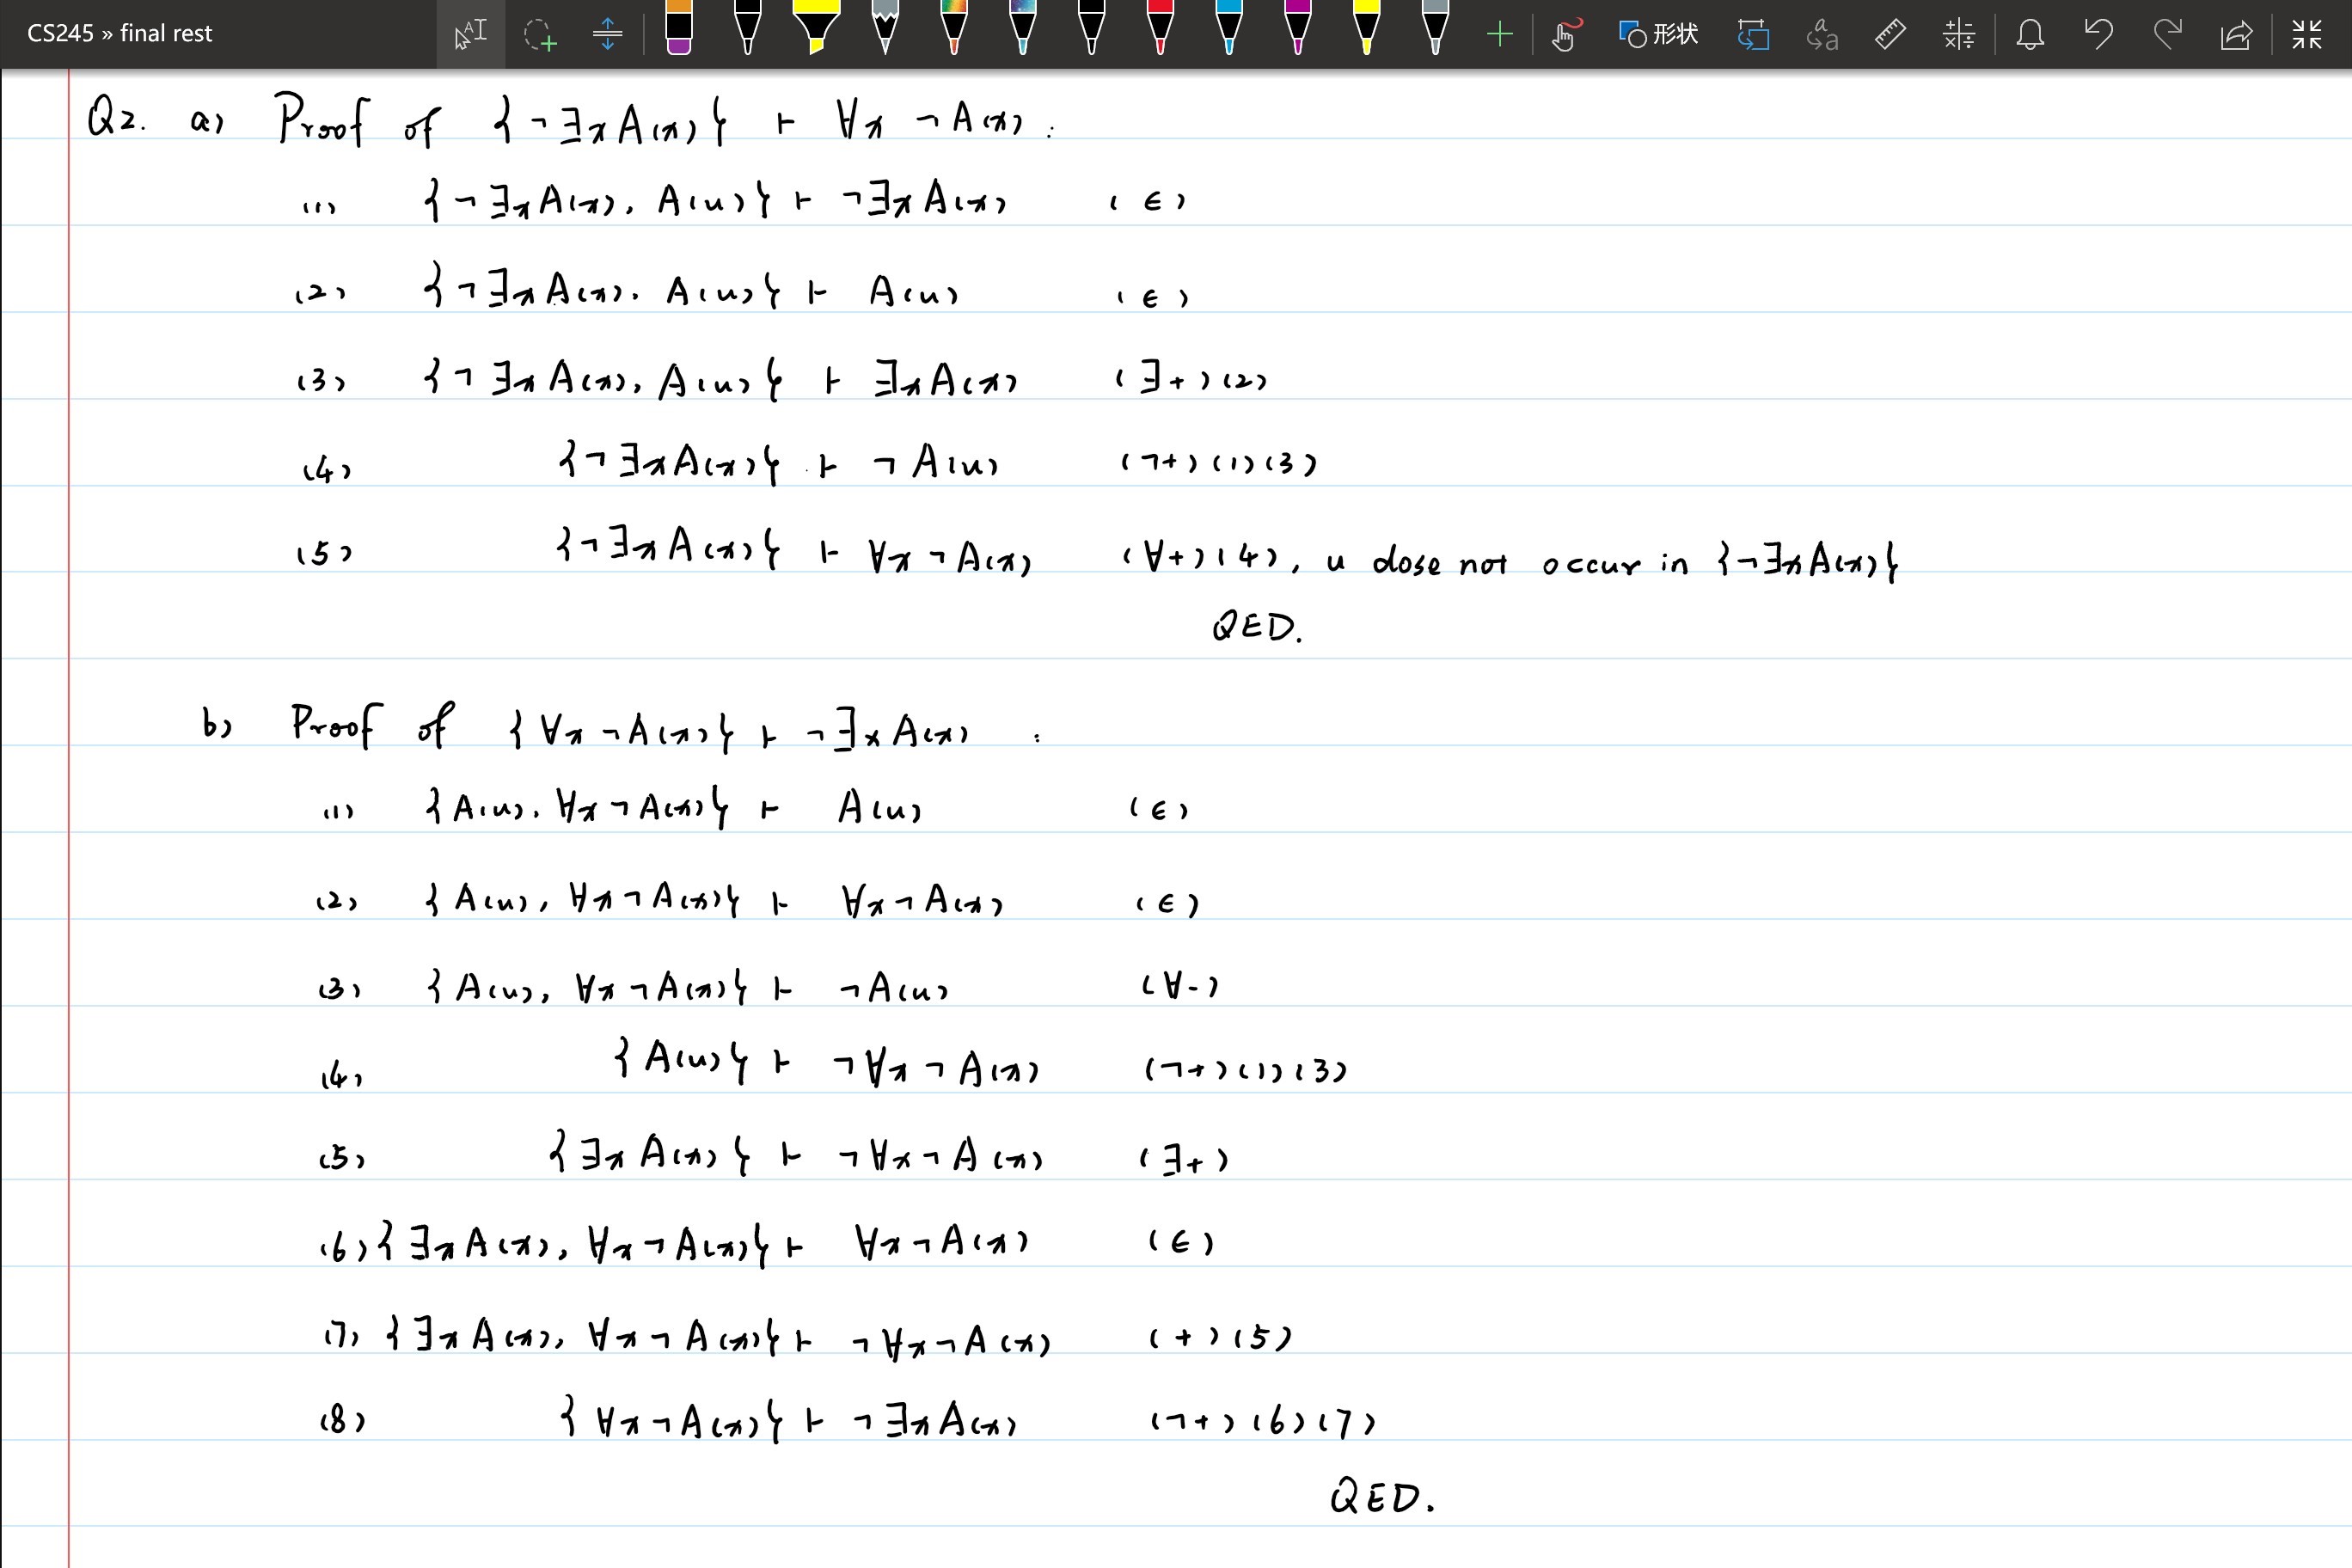 CS245 » final rest
形状
Q2. a) Proof of {¬∃xA(x)} ⊢ ∀x ¬A(x) :
(1) {¬∃xA(x), A(u)} ⊢ ¬∃xA(x) (∈)
(2) {¬∃xA(x), A(u)} ⊢ A(u) (∈)
(3) {¬∃xA(x), A(u)} ⊢ ∃xA(x) (∃+)(2)
(4) {¬∃xA(x)} ⊢ ¬A(u) (¬+)(1)(3)
(5) {¬∃xA(x)} ⊢ ∀x¬A(x) (∀+)(4), u dose not occur in {¬∃xA(x)}
QED.
b) Proof of {∀x¬A(x)} ⊢ ¬∃xA(x) :
(1) {A(u), ∀x¬A(x)} ⊢ A(u) (∈)
(2) {A(u), ∀x¬A(x)} ⊢ ∀x¬A(x) (∈)
(3) {A(u), ∀x¬A(x)} ⊢ ¬A(u) (∀-)
(4) {A(u)} ⊢ ¬∀x¬A(x) (¬+)(1)(3)
(5) {∃xA(x)} ⊢ ¬∀x¬A(x) (∃+)
(6) {∃xA(x), ∀x¬A(x)} ⊢ ∀x¬A(x) (∈)
(7) {∃xA(x), ∀x¬A(x)} ⊢ ¬∀x¬A(x) (+)(5)
(8) {∀x¬A(x)} ⊢ ¬∃xA(x) (¬+)(6)(7)
QED.